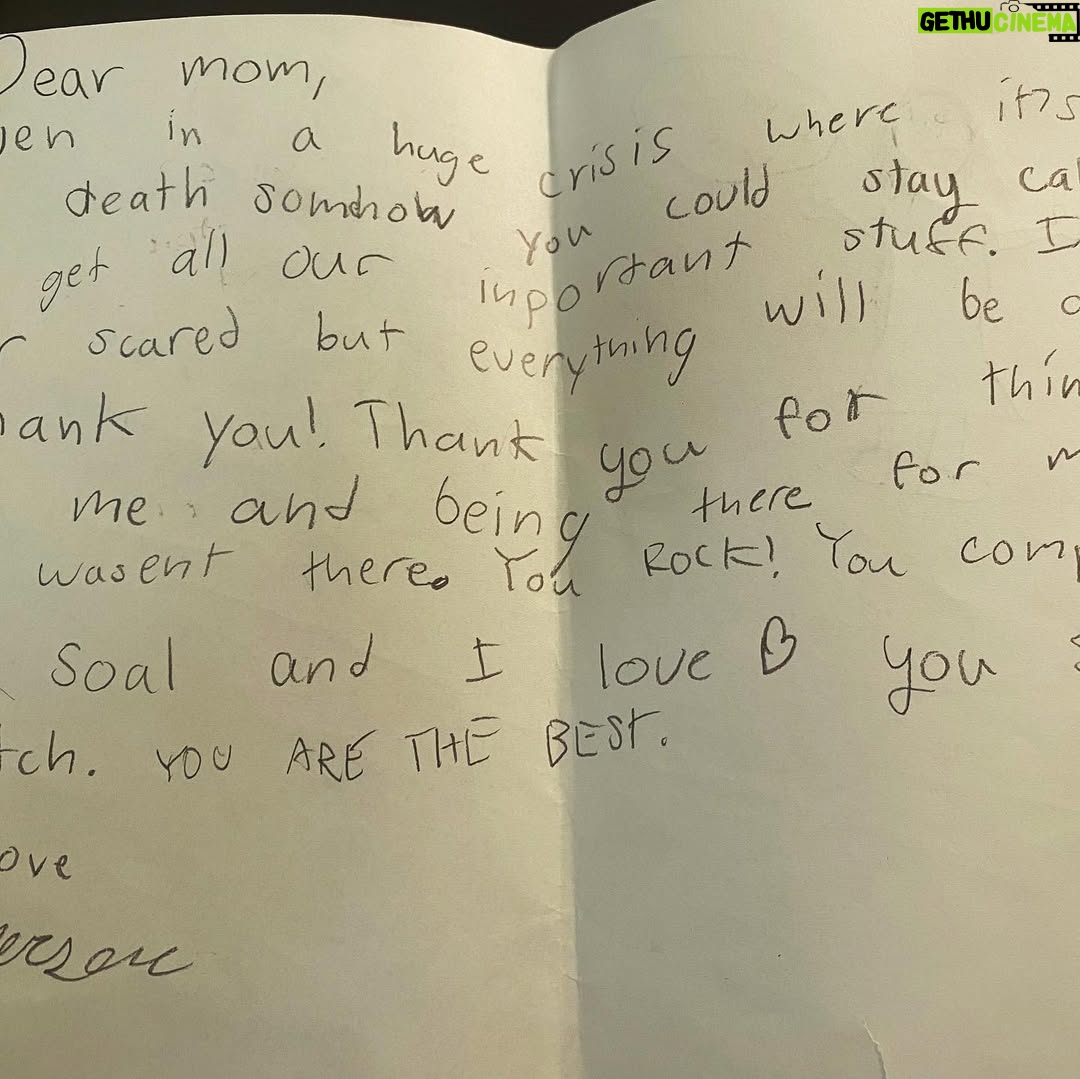 GETHUCINEMA
Dear mom,
in a huge crisis where it's
death somhow you could stay
get all our inportant stuff. I
scared but everything will be
you! Thank you for
me and being there for
wasent there. You ROCK! You
Soal and I love you
YOU ARE THE BEST.